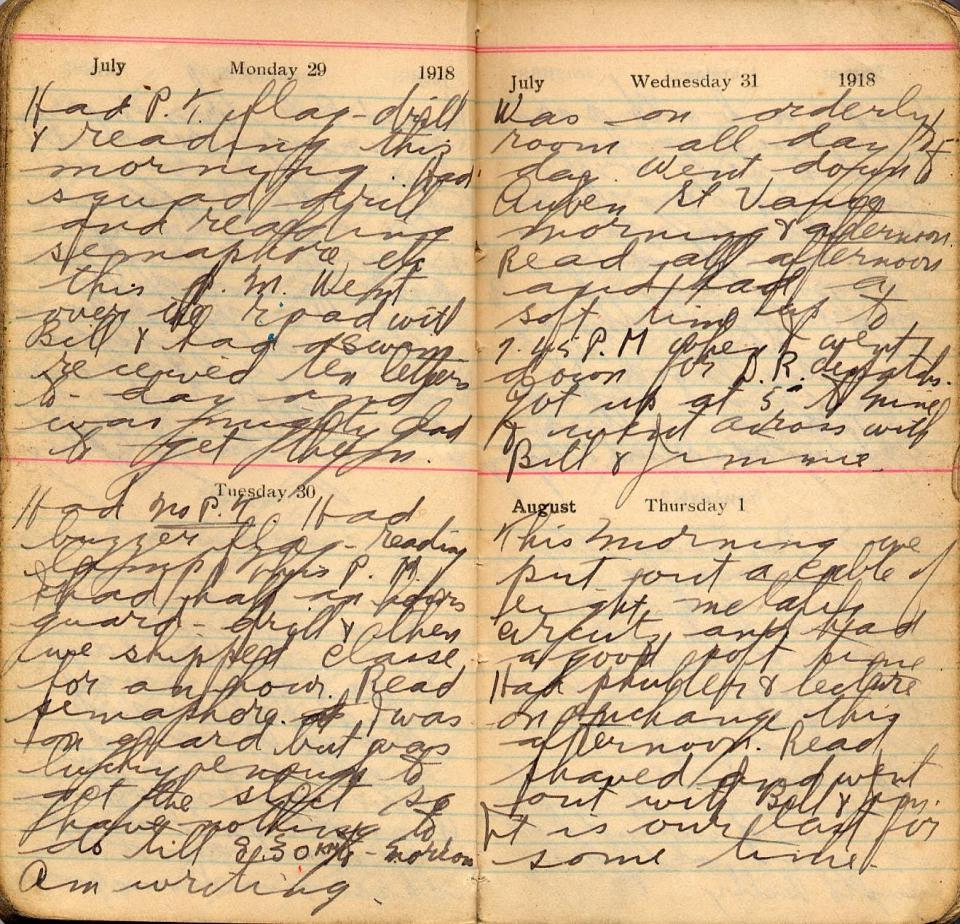 July Monday 29 1918
Had P.T. flag-drill
& reading this
morning. Had
squad drill
and reading
semaphore etc
this P.M. Went
over the road with
Bill & had a swim
received ten letters
to-day and
was mighty glad
to get them.
Tuesday 30
Had no P.T. Had
buzzer flag-reading
lamp. This P.M.
I had half an hours
guard-drill & then
we skipped classe
for an hour. Read
semaphore. I was
on guard but was
lucky enough to
get the
so
have nothing to
do till 8.30
Am writing.
July Wednesday 31 1918
Was on orderly
room all day to-
day. Went down to
Auben St Vaure
morning & afternoon.
Read all afternoon
and had a
soft time up to
7.45 P.M when I went
down for D.R.
Got up at 5
& went across with
Bill & Jimmie.
August Thursday 1
This morning we
put out a cable of
eight metallic
circuits and had
a good soft time
Had & lecture
on exchange this
afternoon. Read
shaved and went
out with Bill & Jim.
It is our last for
some time.